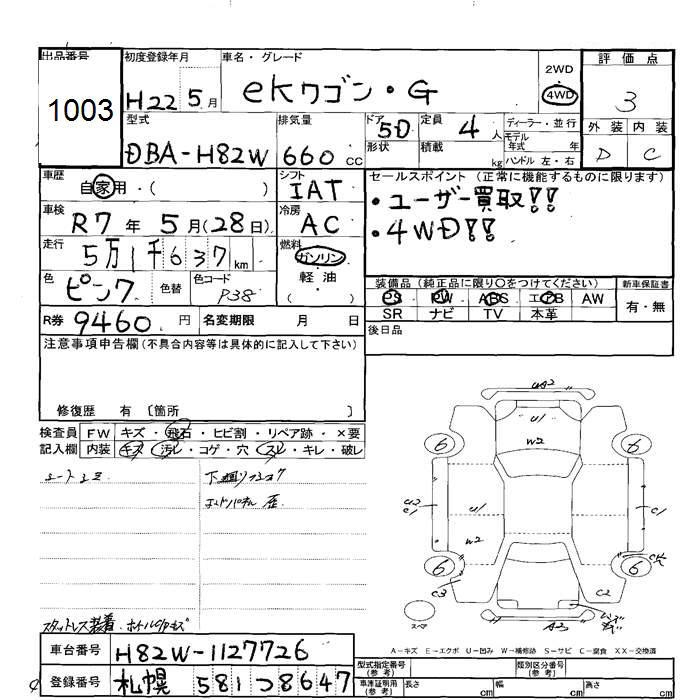 出品番号
1003
初度登録年月
H22 5月
車名・グレード
eKワゴン・G
2WD
4WD
評価点
3
外装 内装
D C
型式
DBA-H82W
排気量
660 cc
ドア 5D
形状
定員 4 人
積載 kg
ディーラー・並行
モデル年式 年
ハンドル 左・右
車歴
自家用・( )
シフト
IAT
セールスポイント (正常に機能するものに限ります)
・ユーザー買取!!
・4WD!!
車検
R7年 5月(28日)
冷房
AC
走行
5万1千637km
燃料
ガソリン・軽油
・( )
色
ピンク
色替
色コード
P38
装備品 (純正品に限り○をつけてください)
PS PW ABS エアB AW
SR ナビ TV 本革
新車保証書
有・無
R券 9460円
名変期限 月 日
後日品
注意事項申告欄(不具合内容等は具体的に記入して下さい)
修復歴 有 〔箇所 〕
検査員記入欄
FW キズ・飛石・ヒビ割・リペア跡・×要
内装 キズ・汚レ・コゲ・穴・スレ・キレ・破レ
A2
U1
W2
6 6
U2
C1
U1
C1
W2
6 6
CK
C3
C2
スペア
A3
A-キズ E-エクボ U-凹み W-補修跡 S-サビ C-腐食 XX-交換済
スタットレス装着
車台番号
H82W-1127726
登録番号
札幌 581つ8647
型式指定番号(参考)
類別区分番号(参考)
車庫証明用(参考)
長さ cm 幅 cm 高さ cm